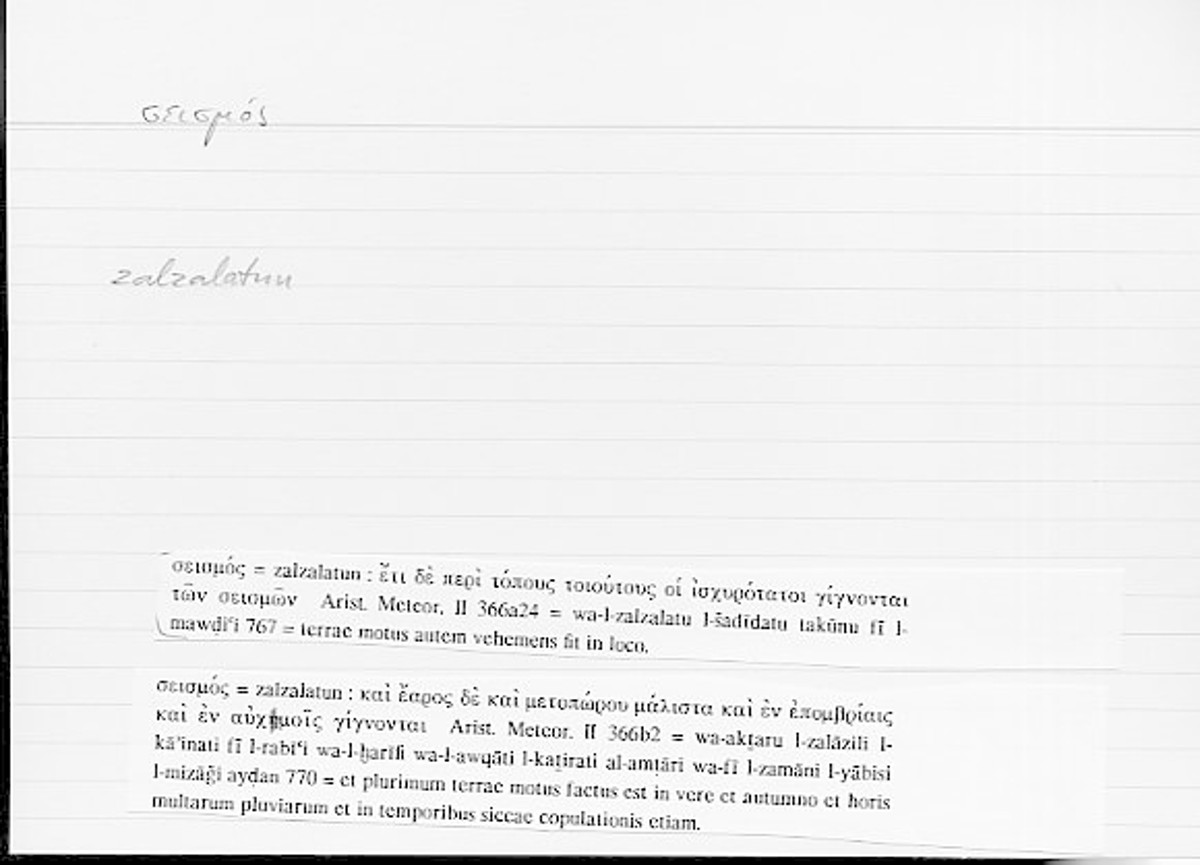 σεισμός
zalzalatun
σεισμός = zalzalatun : ἔτι δὲ περὶ τόπους τοιούτους οἱ ἰσχυρότατοι γίγνονται
τῶν σεισμῶν Arist. Meteor. II 366a24 = wa-l-zalzalatu l-šadīdatu takūnu fī l-
mawḍiʿi 767 = terrae motus autem vehemens fit in loco.
σεισμός = zalzalatun : καὶ ἔαρος δὲ καὶ μετοπώρου μάλιστα καὶ ἐν ἐπομβρίαις
καὶ ἐν αὐχμοῖς γίγνονται Arist. Meteor. II 366b2 = wa-akṯaru l-zalāzili l-
kāʾinati fī l-rabīʿi wa-l-ḫarīfi wa-l-awqāti l-kaṯirati al-amṭāri wa-fī l-zamāni l-yābisi
l-mizāǧi ayḍan 770 = et plurimum terrae motus factus est in vere et autumno et horis
multarum pluviarum et in temporibus siccae copulationis etiam.